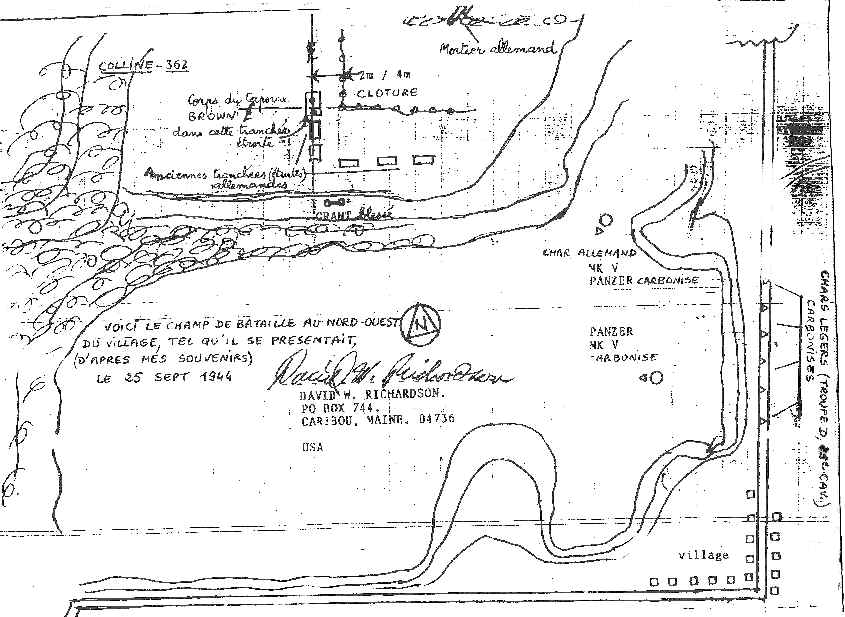 Mortier allemand
COLLINE - 362
2m / 4m
CLOTURE
Corps du caporal
BROWN
dans cette tranchée
étroite
Anciennes tranchées (étroites)
allemandes
GRANT blessé
CHAR ALLEMAND
MK V
PANZER CARBONISE
PANZER
MK V
CARBONISE
CHARS LEGERS (TROUPE D, CAV.)
CARBONISES
N
VOICI LE CHAMP DE BATAILLE AU NORD-OUEST
DU VILLAGE, TEL QU'IL SE PRESENTAIT,
(D'APRES MES SOUVENIRS)
LE 25 SEPT 1944
David W. Richardson
DAVID W. RICHARDSON.
PO BOX 744.
CARIBOU, MAINE. 04736
USA
village